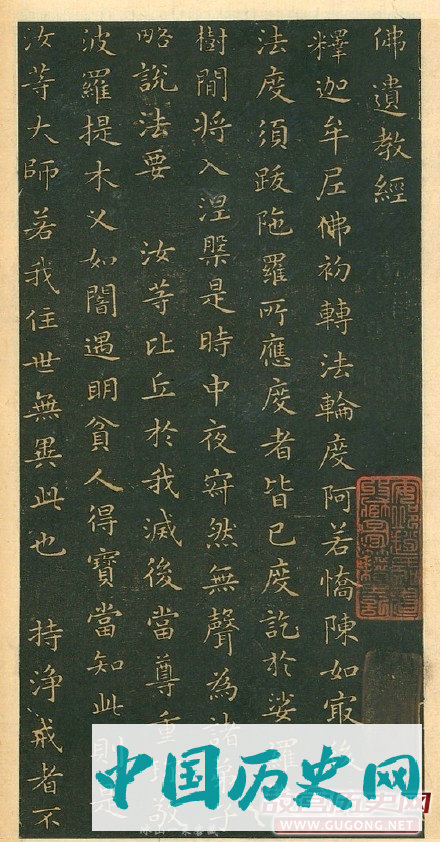 佛遺教經
釋迦牟尼佛初轉法輪度阿若憍陳如冣後
法度須跋陁羅所應度者皆已度訖於娑羅
樹間將入涅槃是時中夜寂然無聲為諸弟子
略說法要 汝等比丘於我滅後當尊重敬
波羅提木叉如闇遇眀貧人得寶當知此則是
汝等大師若我住世無異此也 持淨戒者不
中国历史网
WWW.GUGONG.NET